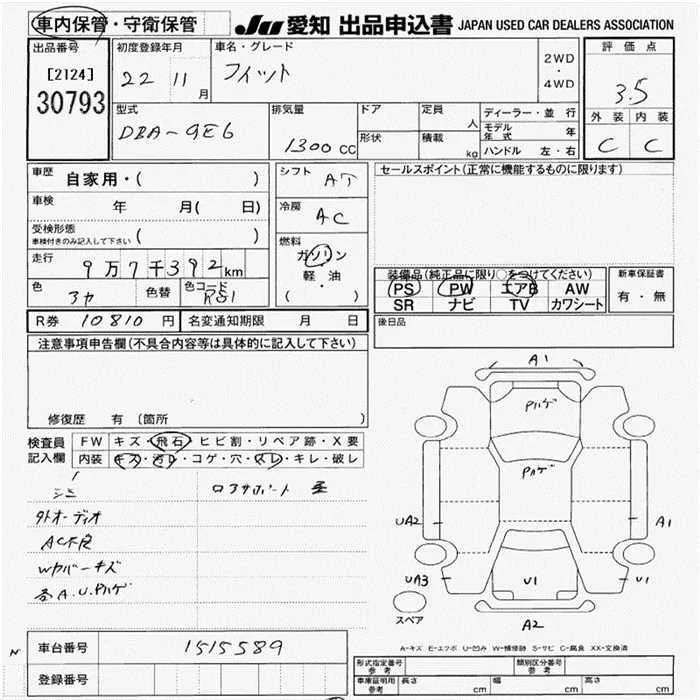 車内保管・守衛保管
JU 愛知 出品申込書 JAPAN USED CAR DEALERS ASSOCIATION
出品番号
[2124]
30793
初度登録年月
22 11月
車名・グレード
フィット
2WD
・
4WD
評価点
3.5
外装 内装
C C
型式
DBA-GE6
排気量
1300cc
ドア
形状
定員
人
積載
kg
ディーラー・並行
モデル年式 年
ハンドル 左・右
車歴
自家用・( )
車検
年 月( 日)
受検形態
車検付きのみ記入して下さい ( )
走行
9万7千392km
色
アカ
色替
色コード
R81
シフト
AT
冷房
AC
燃料
ガソリン
・
軽・油
( )
セールスポイント(正常に機能するものに限ります)
装備品(純正品に限り〇をつけてください)
PS PW エアB AW
SR ナビ TV カワシート
新車保証書
有・無
後日品
R券 10810円
名変通知期限 月 日
注意事項申告欄(不具合内容等は具体的に記入して下さい)
修復歴 有 (箇所 )
検査員
記入欄
FW キズ・飛石・ヒビ割・リペア跡・X要
内装 キズ・汚レ・コゲ・穴・スレ・キレ・破レ
シミ
ロアサポート
外オーディオ
AC不良
Wカバーキズ
各A.U.Pハゲ
A1
Pハゲ
Pハゲ
UA2
A1
UA3
U1
U1
スペア
A2
A-キズ E-エクボ U-凹み W-補修跡 S-サビ C-腐食 XX-交換済
N
車台番号
1515589
登録番号
形式指定番号
参考
類別区分番号
参考
車庫証明用
参考
長さ cm
幅 cm
高さ cm